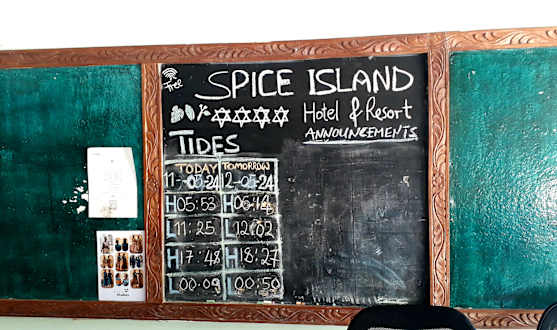 Free
SPICE ISLAND
Hotel & Resort
ANNOUNCEMENTS
TIDES
TODAY TOMORROW
11-05-24 12-05-24
H 05:53 H 06:14
L 11:25 L 12:02
H 17:48 H 18:27
L 00:09 L 00:50